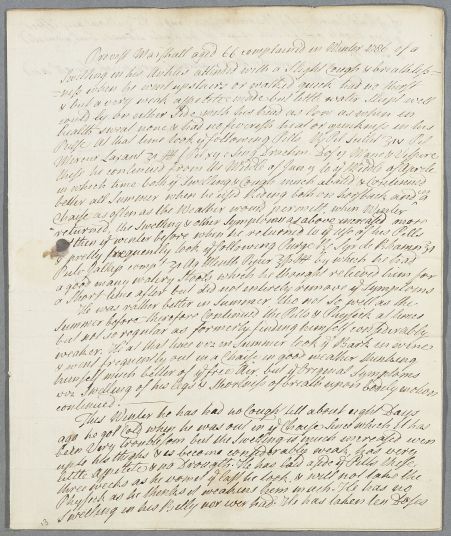 Provost Marshall aged 66 complained in Winter 1786 of a
Swelling in his Ankles attended with a slight Cough & breathless=
=ness when he went upstairs or walked quick had no thirst
& but a very weak appetite made but little water Sleept well
could ly on either side with his head as low as when in
health sweat none & had no feverish heat or quickness in his
Pulse. At that time
these he continued from the Middle of Jany to ye Middle of Aprile
in which time both ye Swelling & Cough much abated & Continued
better all Summer when he used riding both on horseback and in a
Chaise as often as the Weather would permitt when Winter
returned, the Swelling & other Symptoms as above increased more
then ye winter before when he returned to ye use of his Pills
& pretty frequently took ye following Purge
by which he had
a good many watery Stools which he thought relieved him for
a Short time after but did not entirely remove ye Symptoms
He was rather better in Summer tho not so well as the
Summer before Therefore Continued the Pills & Physick at times
but not so regular as formerly finding himself considerably
weaker. He at that time viz in Summer took ye Bark in wine
& went frequently out in a Chaise in good weather thinking
himself much better of ye free Air. but ye Original Symptoms
viz Swelling of his legs & Shortness of breath upon bodily motion
continued.
This Winter he has had no Cough till about eight Days
ago he got Cold when he was out in ye Chaise Since which it has
been Very troublesom but the Swelling is much increased even
up to his thighs & is become considerably weak has very
little appetite & no Drought. He has laid aside ye Pills these
three weeks as he vomed ye last he took & will not take the
Physick as he thinks it weakens him much. He has no
Swelling in his Belly nor ever had. He has taken ten Doses